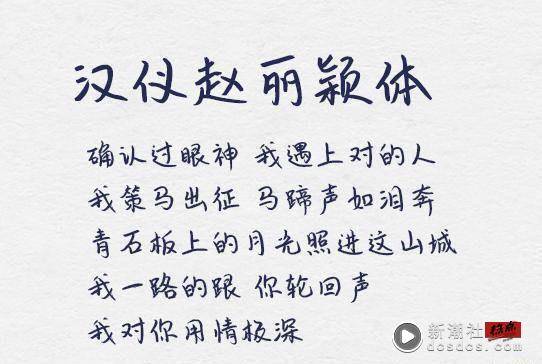 汉仪赵丽颖体
确认过眼神 我遇上对的人
我策马出征 马蹄声如泪奔
青石板上的月光照进这山城
我一路的跟 你轮回声
我对你用情极深
新潮社
docsos.com